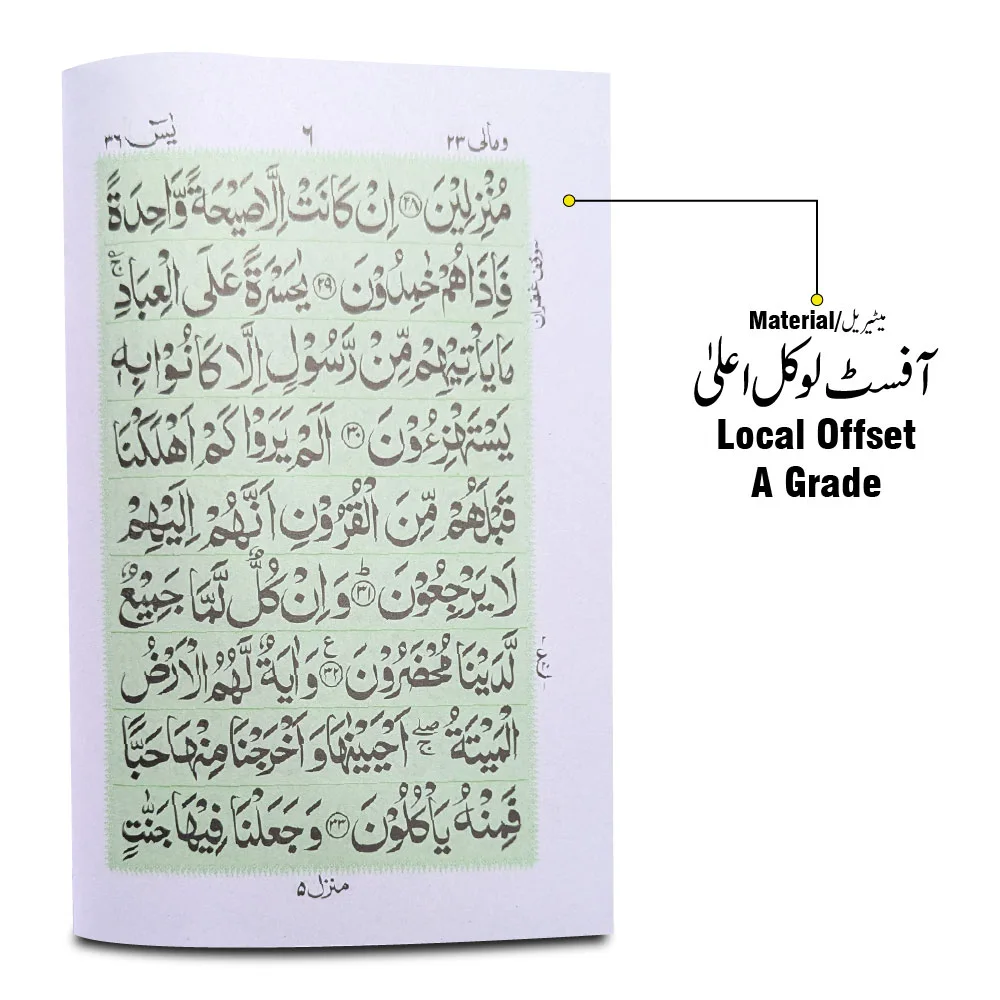 یٰسٓ ۳۶ ۶ ومالی ۲۳
مُنْزِلِیْنَ ﴿۲۸﴾ اِنْ كَانَتْ اِلَّا صَیْحَةً وَّاحِدَةً
فَاِذَا هُمْ خٰمِدُوْنَ ﴿۲۹﴾ یٰحَسْرَةً عَلَى الْعِبَادِ ۚؔ
مَا یَاْتِیْهِمْ مِّنْ رَّسُوْلٍ اِلَّا كَانُوْا بِهٖ
یَسْتَهْزِءُوْنَ ﴿۳۰﴾ اَلَمْ یَرَوْا كَمْ اَهْلَكْنَا
قَبْلَهُمْ مِّنَ الْقُرُوْنِ اَنَّهُمْ اِلَیْهِمْ
لَا یَرْجِعُوْنَ ﴿۳۱﴾ؕ وَ اِنْ كُلٌّ لَّمَّا جَمِیْعٌ
لَّدَیْنَا مُحْضَرُوْنَ ﴿۳۲﴾ ع وَ اٰیَةٌ لَّهُمُ الْاَرْضُ
الْمَیْتَةُ ۖۚ اَحْیَیْنٰهَا وَ اَخْرَجْنَا مِنْهَا حَبًّا
فَمِنْهُ یَاْكُلُوْنَ ﴿۳۳﴾ وَ جَعَلْنَا فِیْهَا جَنّٰتٍ
منزل ۵
وقف غفران
ع
Material/میٹیریل
آفسٹ لوکل اعلیٰ
Local Offset
A Grade